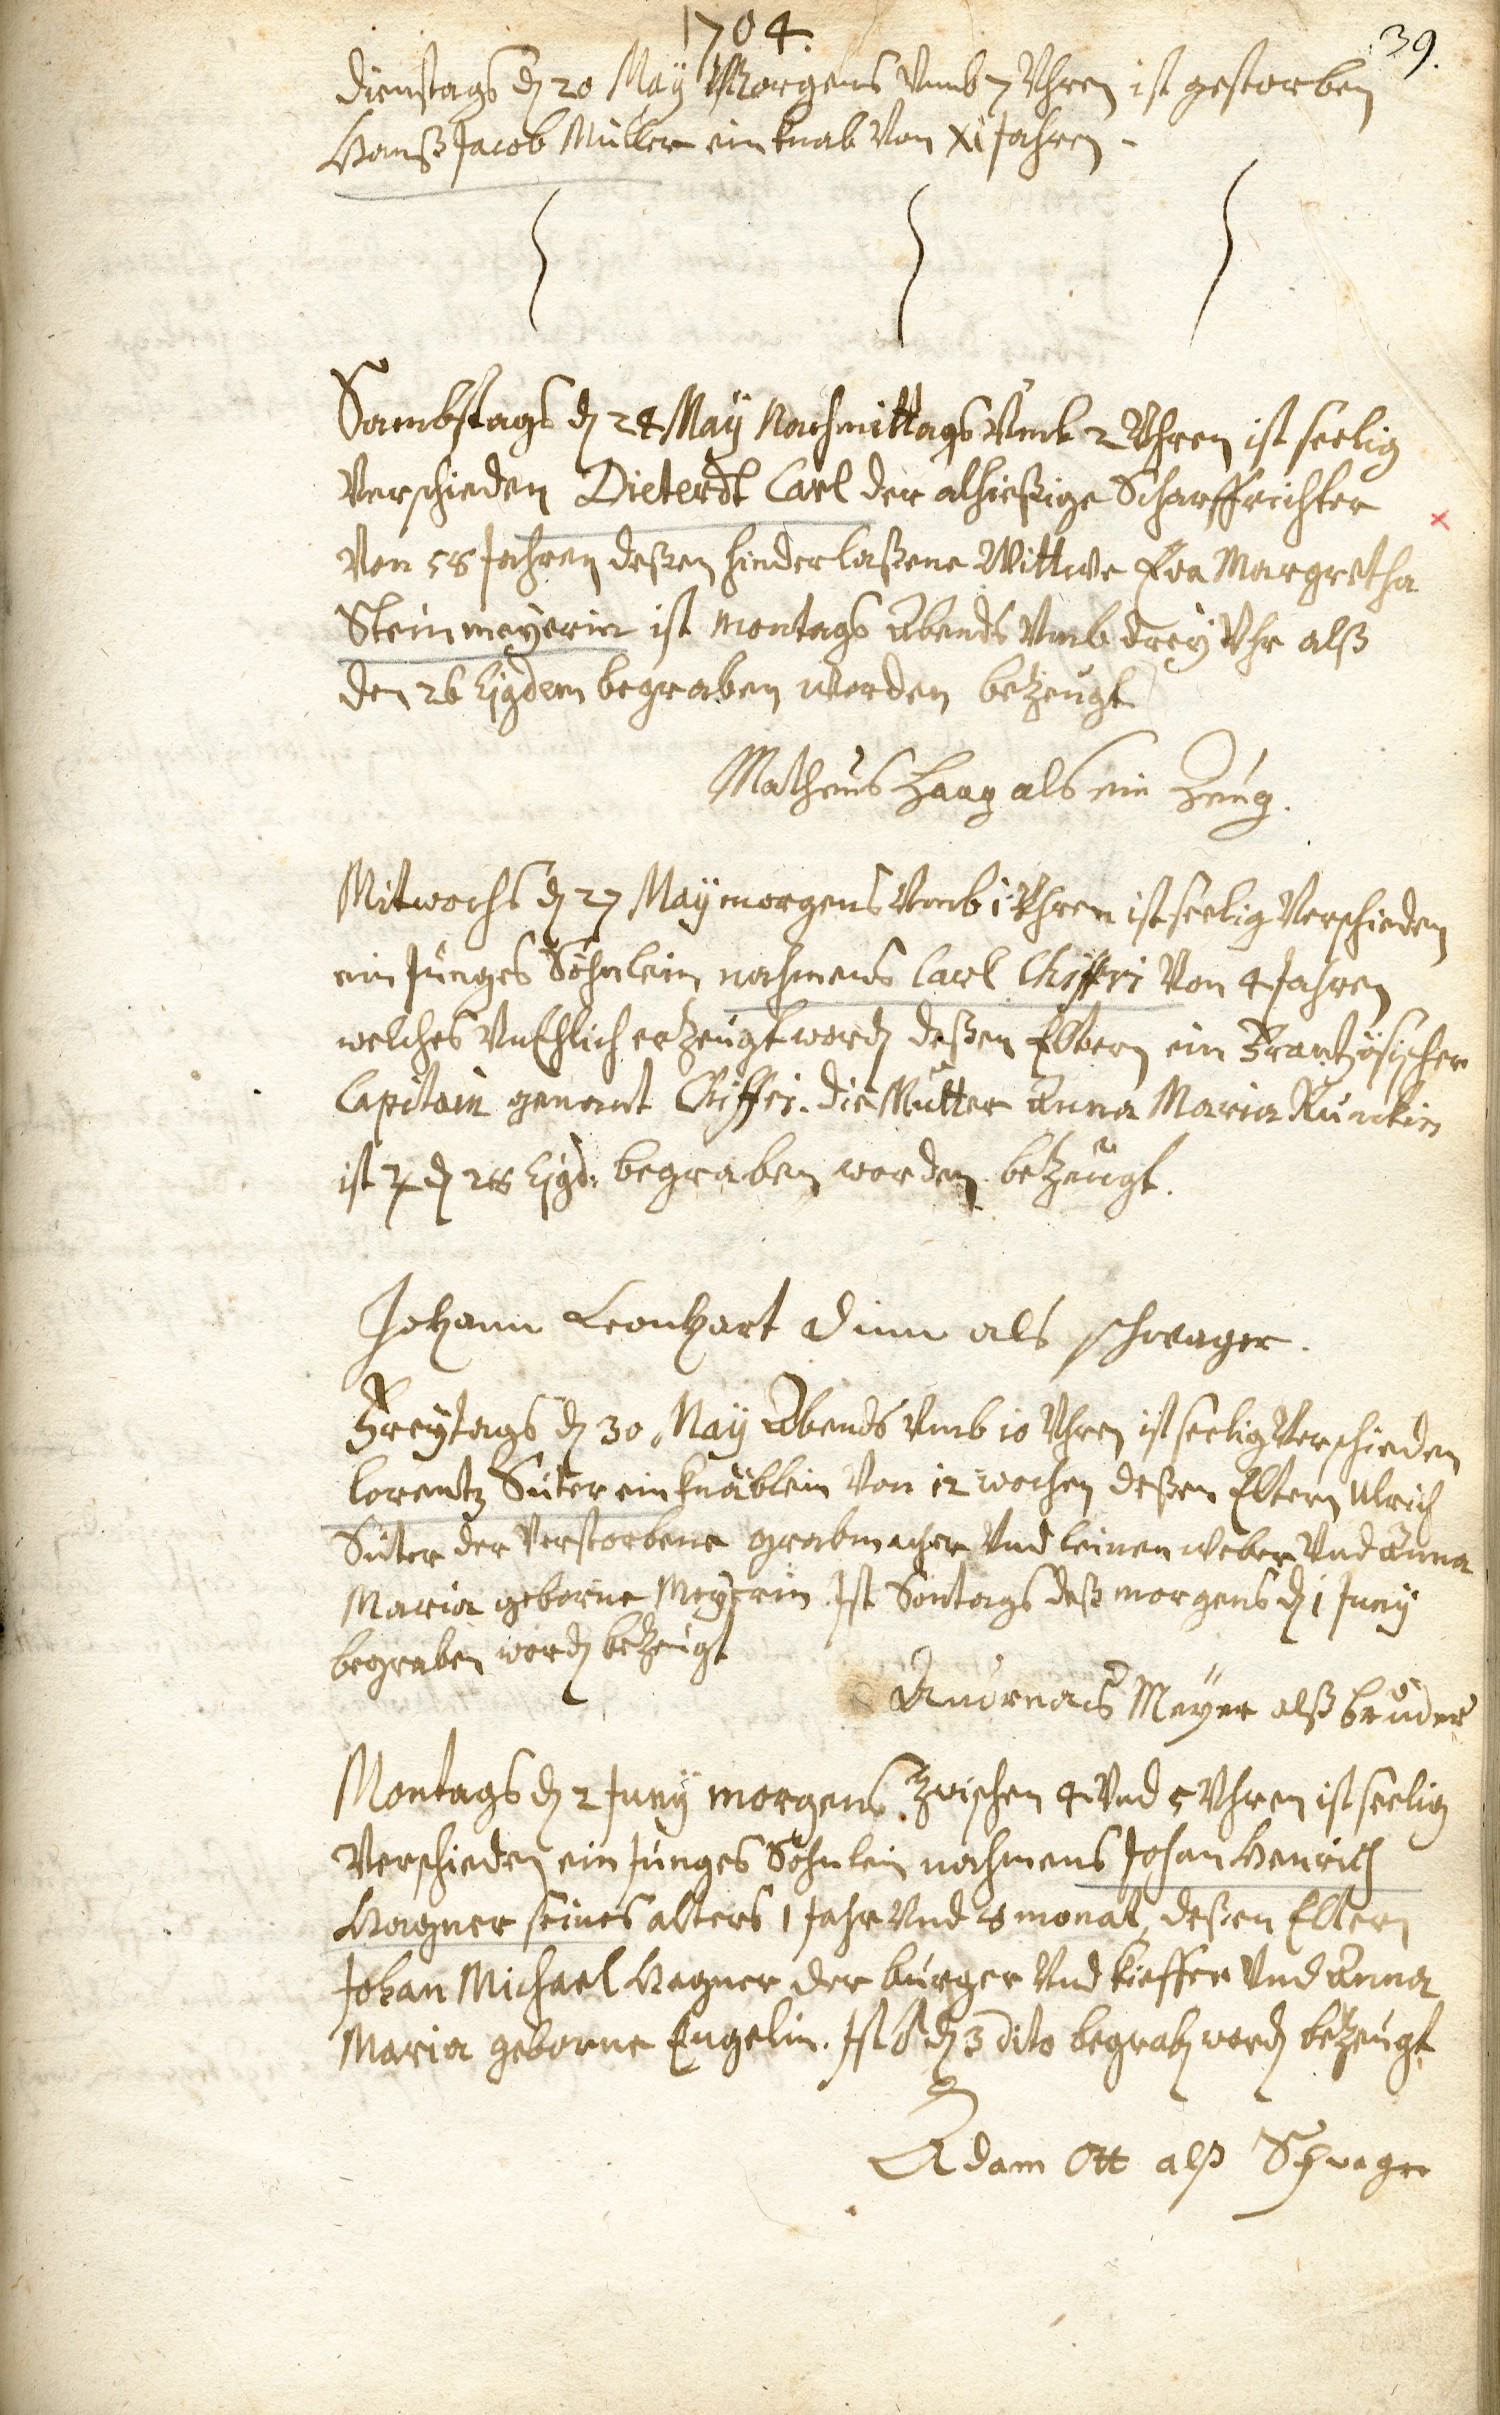 1704.
39.
Dienstags dē 20 May Morgens Vmb 7 Vhren ist gestorben
Hanß Jacob Müller ein knab Von XI Jahren.
Sambstags dē 24 May Nachmittags Vmb 2 Vhren ist seelig
Verschieden Dieterdt Carl der alhießige Scharffrichter
Von 58 Jahren deßen hinderlaßene Wittwe Eva Margretha
Steinmeyerin ist Montags Abends Vmb drey Vhr alß
den 26 Ejqdem begraben worden bezeugt
Matheus Haag als ein Zeug.
Mitwochs dē 27 May morgens Vmb 1 Vhren ist seelig Verschieden
ein Junges Söhnlein nahmens Carl Chiffri Von 4 Jahren
welches VnEhlich erzeugt wordē deßen Eltern ein Frantzösischer
Capitain genant Chiffri. die Mutter Anna Maria Runckin
ist ♃ dē 28 Ejqd: begraben worden bezeugt.
Johann Leonhart Dinn als schwager.
Freytags dē 30 May Abends Vmb 10 Vhren ist seelig Verschieden
Lorentz Suter ein knäblein Von 12 wochen deßen Eltern Ulrich
Suter der Verstorbene grabmacher Vnd leinenweber Vnd Anna
Maria geborne Meyerin. Ist Sontags deß morgens dē 1 Juny
begraben wordē bezeugt
Andreas Meyer alß bruder
Montags dē 2 Juny morgens zwischen 4 Vnd 5 Vhren ist seelig
Verschieden ein Junges Söhnlein nahmens Johan Henrich
Wagner seines alters 1 Jahr Vnd 8 monat, deßen Eltern
Johan Michael Wagner der burger Vnd kieffer Vnd Anna
Maria geborne Engelin. Ist ♂ dē 3 dito begrabē wordē bezeugt
Adam Ott alß Schwager